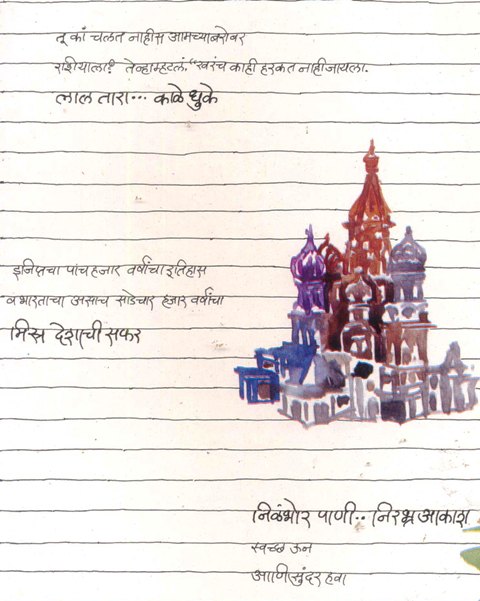 तू कां चलत नाहीस आमच्याबरोबर
राशीयाला? तेव्हा म्हटलं. "खरंच काही हरकत नाही जायला.
लाल तारा... काळे धुके
इजिप्तचा पांच हजार वर्षांचा इतिहास
व भारताचा असाच साडेचार हजार वर्षांचा
मिस्र देशाची सफर
निळंभोर पाणी.. निरभ्र आकाश
स्वच्छ ऊन
आणि सुंदर हवा